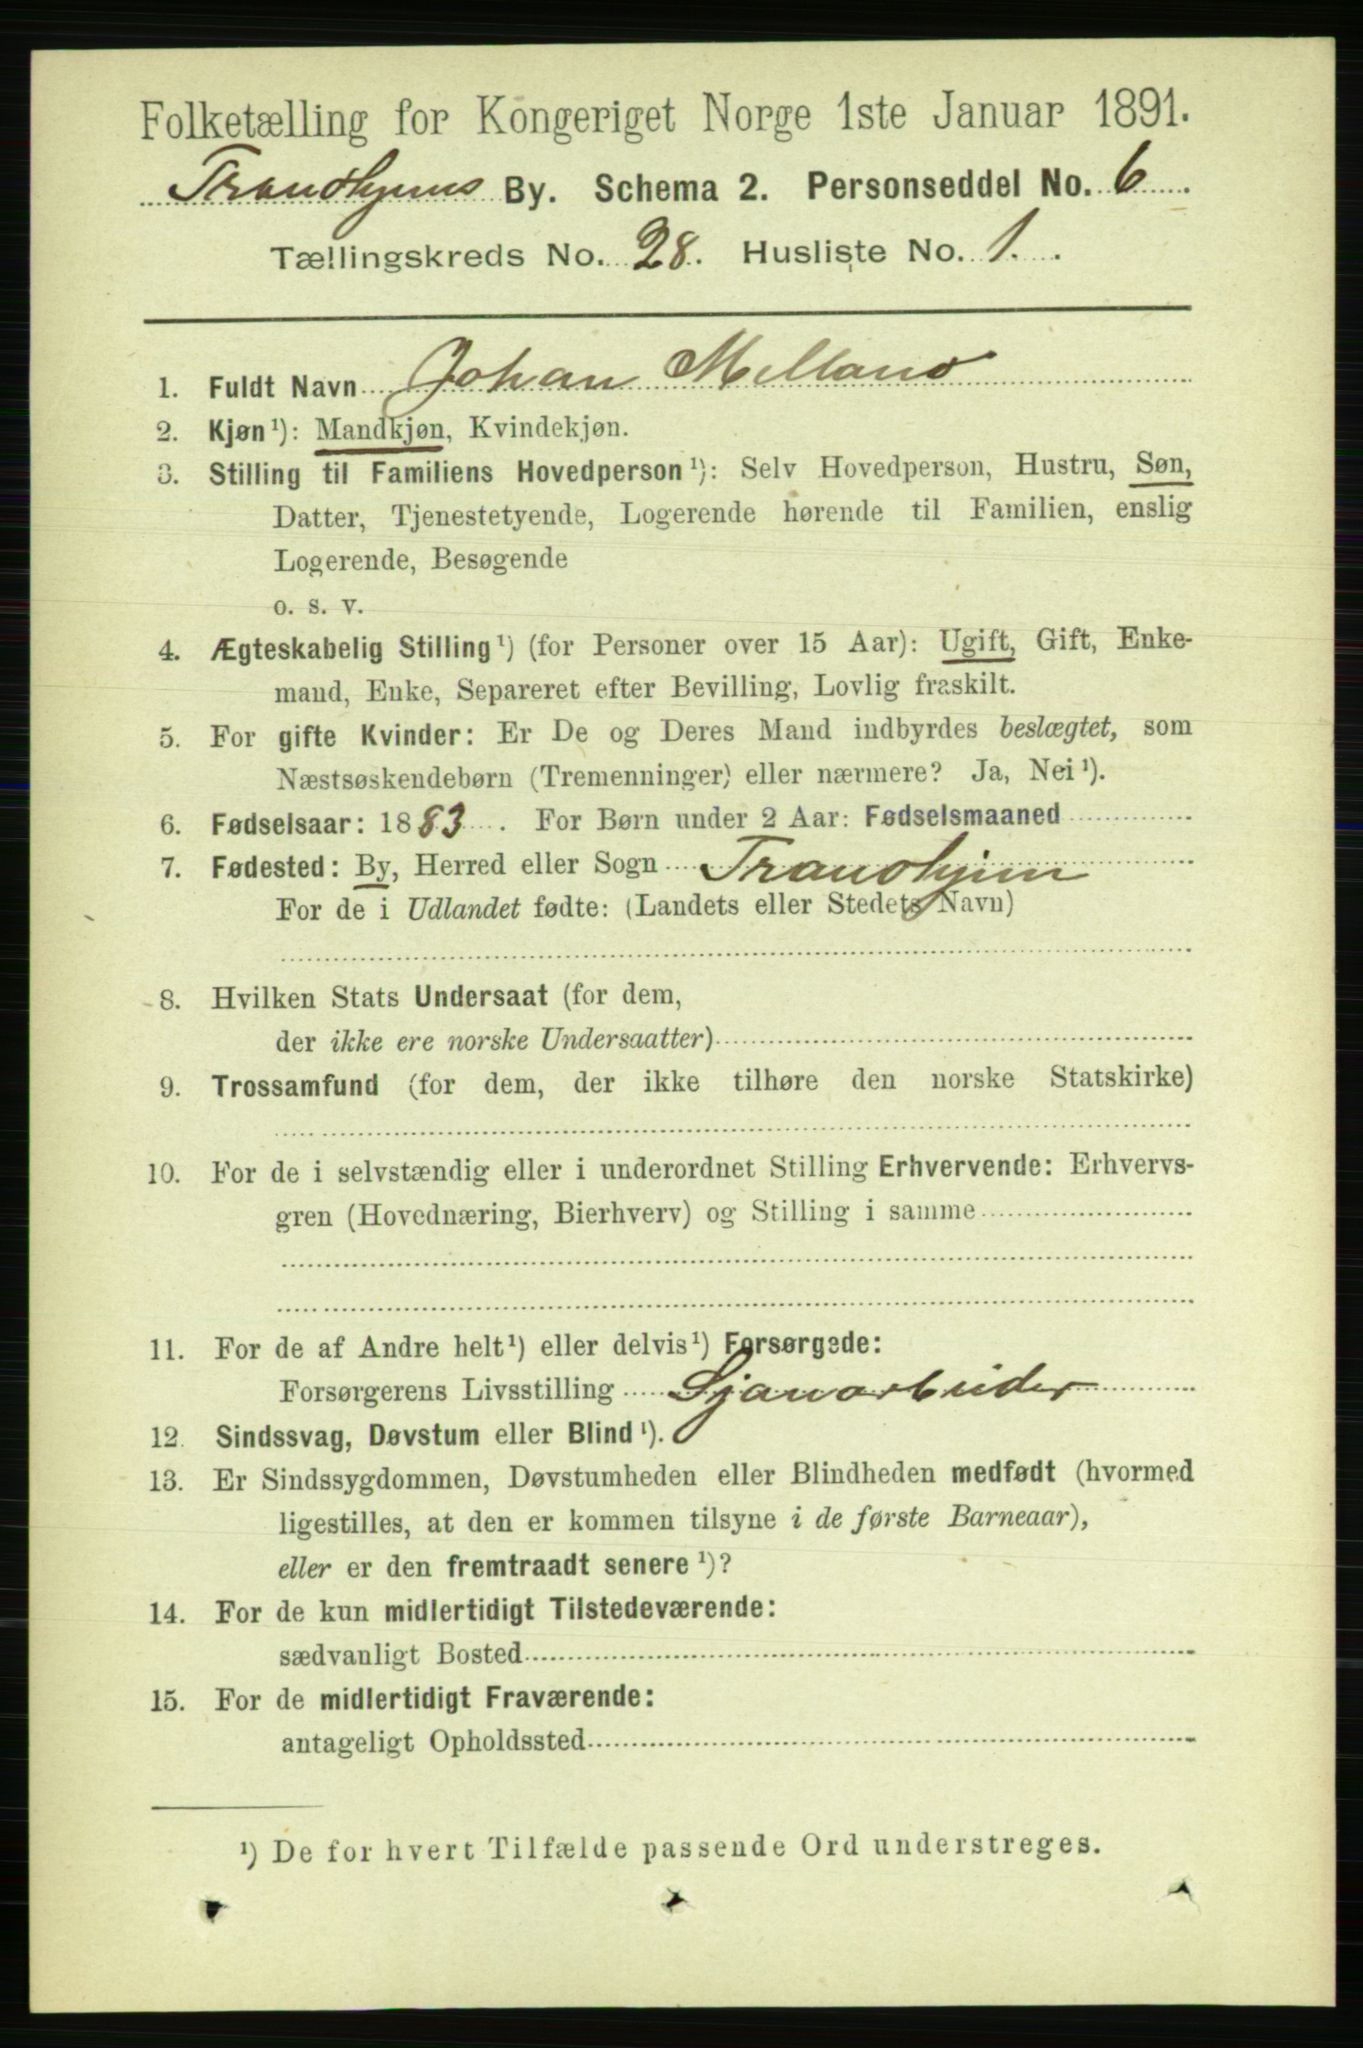 Folketælling for Kongeriget Norge 1ste Januar 1891.
Trondhjems By. Schema 2. Personseddel No. 6.
Tællingskreds No. 28. Husliste No. 1.
1. Fuldt Navn Johan Melland
2. Kjøn¹): Mandkjøn, Kvindekjøn.
3. Stilling til Familiens Hovedperson¹): Selv Hovedperson, Hustru, Søn,
Datter, Tjenestetyende, Logerende hørende til Familien, enslig
Logerende, Besøgende
o. s. v.
4. Ægteskabelig Stilling¹) (for Personer over 15 Aar): Ugift, Gift, Enke-
mand, Enke, Separeret efter Bevilling, Lovlig fraskilt.
5. For gifte Kvinder: Er De og Deres Mand indbyrdes beslægtet, som
Næstsøskendebørn (Tremenninger) eller nærmere? Ja, Nei¹).
6. Fødselsaar: 1883. For Børn under 2 Aar: Fødselsmaaned
7. Fødested: By, Herred eller Sogn Trondhjem
For de i Udlandet fødte: (Landets eller Stedets Navn)
8. Hvilken Stats Undersaat (for dem,
der ikke ere norske Undersaatter)
9. Trossamfund (for dem, der ikke tilhøre den norske Statskirke)
10. For de i selvstændig eller i underordnet Stilling Erhvervende: Erhvervs-
gren (Hovednæring, Bierhverv) og Stilling i samme
11. For de af Andre helt¹) eller delvis¹) Forsørgede:
Forsørgerens Livsstilling Sjauarbeider
12. Sindssvag, Døvstum eller Blind¹).
13. Er Sindssygdommen, Døvstumheden eller Blindheden medfødt (hvormed
ligestilles, at den er kommen tilsyne i de første Barneaar),
eller er den fremtraadt senere¹)?
14. For de kun midlertidigt Tilstedeværende:
sædvanligt Bosted
15. For de midlertidigt Fraværende:
antageligt Opholdssted
¹) De for hvert Tilfælde passende Ord understreges.